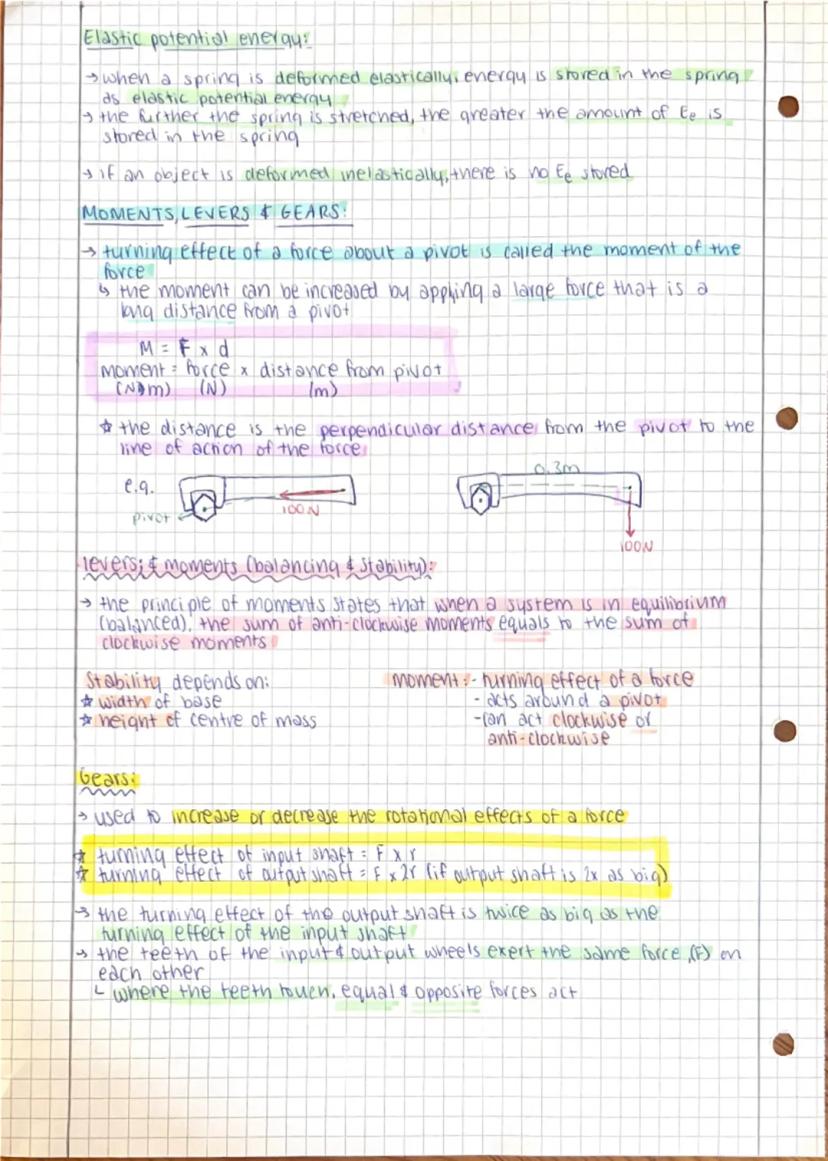 Elastic potential energy:
→ when a spring is deformed elastically, energy is stored in the spring
as elastic potential energy
→ the further the spring is stretched, the greater the amount of Ee is
stored in the spring
→ if an object is deformed inelastically, there is no Ee stored
MOMENTS, LEVERS & GEARS:
→ turning effect of a force about a pivot is called the moment of the
force
↳ the moment can be increased by applying a large force that is a
long distance from a pivot
M = F x d
moment = force x distance from pivot
(Nm) (N) (m)
☆ the distance is the perpendicular distance from the pivot to the
line of action of the force
e.g.
0.3m
pivot
100N
100N
levers; & moments (balancing & stability):
→ the principle of moments states that when a system is in equilibrium
(balanced), the sum of anti-clockwise moments equals to the sum of
clockwise moments
Stability depends on:
☆ width of base
☆ height of centre of mass
moment: - turning effect of a force
- acts around a pivot
- can act clockwise or
anti-clockwise
Gears:
→ used to increase or decrease the rotational effects of a force
☆ turning effect of input shaft = F x r
☆ turning effect of output shaft = F x 2r (if output shaft is 2x as big)
→ the turning effect of the output shaft is twice as big as the
turning effect of the input shaft
→ the teeth of the input & output wheels exert the same force (F) on
each other
↳ where the teeth touch, equal & opposite forces act